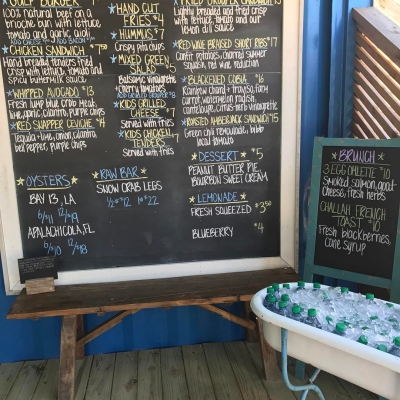 GULF BURGER
100% natural beef on a
brioche bun with lettuce
tomato and garlic aioli
CHICKEN SANDWICH $7
Hand breaded tenders fried
Crisp with lettuce, tomato
and spicy buttermilk sauce
WHIPPED AVOCADO $13
Fresh lump blue crab meat,
lime, garlic, cilantro, purple chips
RED SNAPPER CEVICHE $4
Tequila + lime, onion, cilantro
bell pepper, purple chips
HAND CUT
FRIES $4
HUMMUS $7
Crispy pita chips
MIXED GREEN
SALAD
Balsamic vinaigrette
+ cherry tomatoes
ADD GRILLED GROUPER $8
KIDS GRILLED
CHEESE $7
Served with fries
KIDS CHICKEN $7
TENDERS
Served with fries
Lightly breaded and fried crisp
with lettuce, tomato and our
lemon dill sauce
RED WINE BRAISED SHORT RIBS $17
Confit potatoes, charred summer
squash, red wine reduction
BLACKENED COBIA $16
Rainbow chard + fresno, farm
carrot, watermelon radish,
canteloupe, citrus-herb vinaigrette
ROASTED AMBERJACK SANDWICH $15
Green chili remoulade, bibb
local tomato
OYSTERS
BAY 13, LA
6/$11 12/$19
APALACHICOLA, FL
6/$10 12/$18
RAW BAR
SNOW CRAB LEGS
1/2# $12 1# $22
DESSERT $5
PEANUT BUTTER PIE
BOURBON SWEET CREAM
LEMONADE
FRESH SQUEEZED $3.50
BLUEBERRY $4
BRUNCH
3 EGG OMLETTE $10
Smoked salmon, goat
Cheese, fresh herbs
CHALLAH FRENCH
TOAST $10
Fresh blackberries,
cane syrup